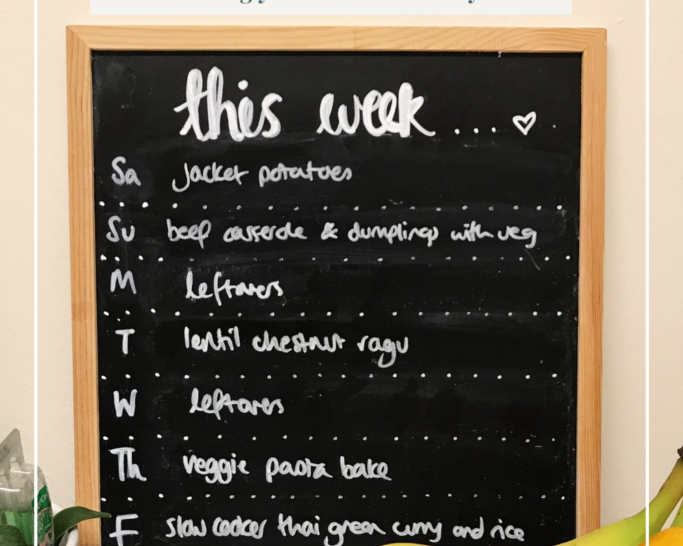 this week ... ♡
Sa jacket potatoes
Su beef casserole & dumplings with veg
M leftovers
T lentil chestnut ragu
W leftovers
Th veggie pasta bake
F slow cooker thai green curry and rice